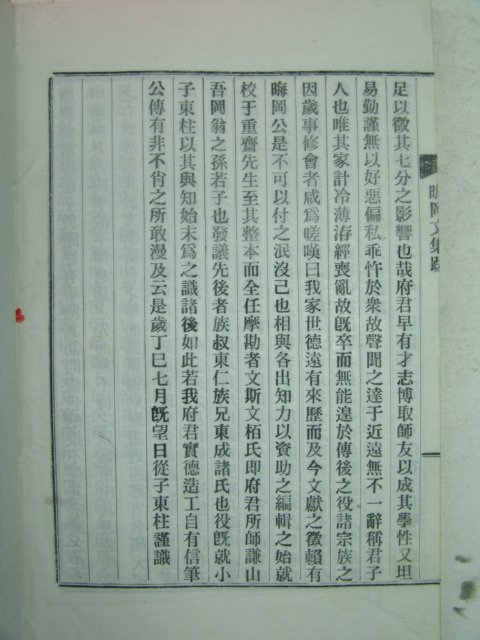 晦岡文集跋
足以徵其七分之影響也哉府君早有才志博取師友以成其學性又坦
易勤謹無以好惡偏私乖忤於衆故聲聞之達于近遠無不一辭稱君子
人也唯其家計冷薄洊經喪亂故旣卒而無能遑於傳後之役諸宗族之
因歲事修會者咸爲嗟嘆曰我家世德遠有來歷而及今文獻之徵賴有
晦岡公是不可以付之泯沒己也相與各出知力以資助之編輯之始就
校于重齋先生至其整本而全任摩勘者文斯文栢氏即府君所師謙山
吾岡翁之孫若子也發議先後者族叔東仁族兄東成諸氏也役旣就小
子東柱以其與知始末爲之識諸後如此若我府君實德造工自有信筆
公傳有非不肖之所敢漫及云是歲丁巳七月旣望日從子東柱謹識